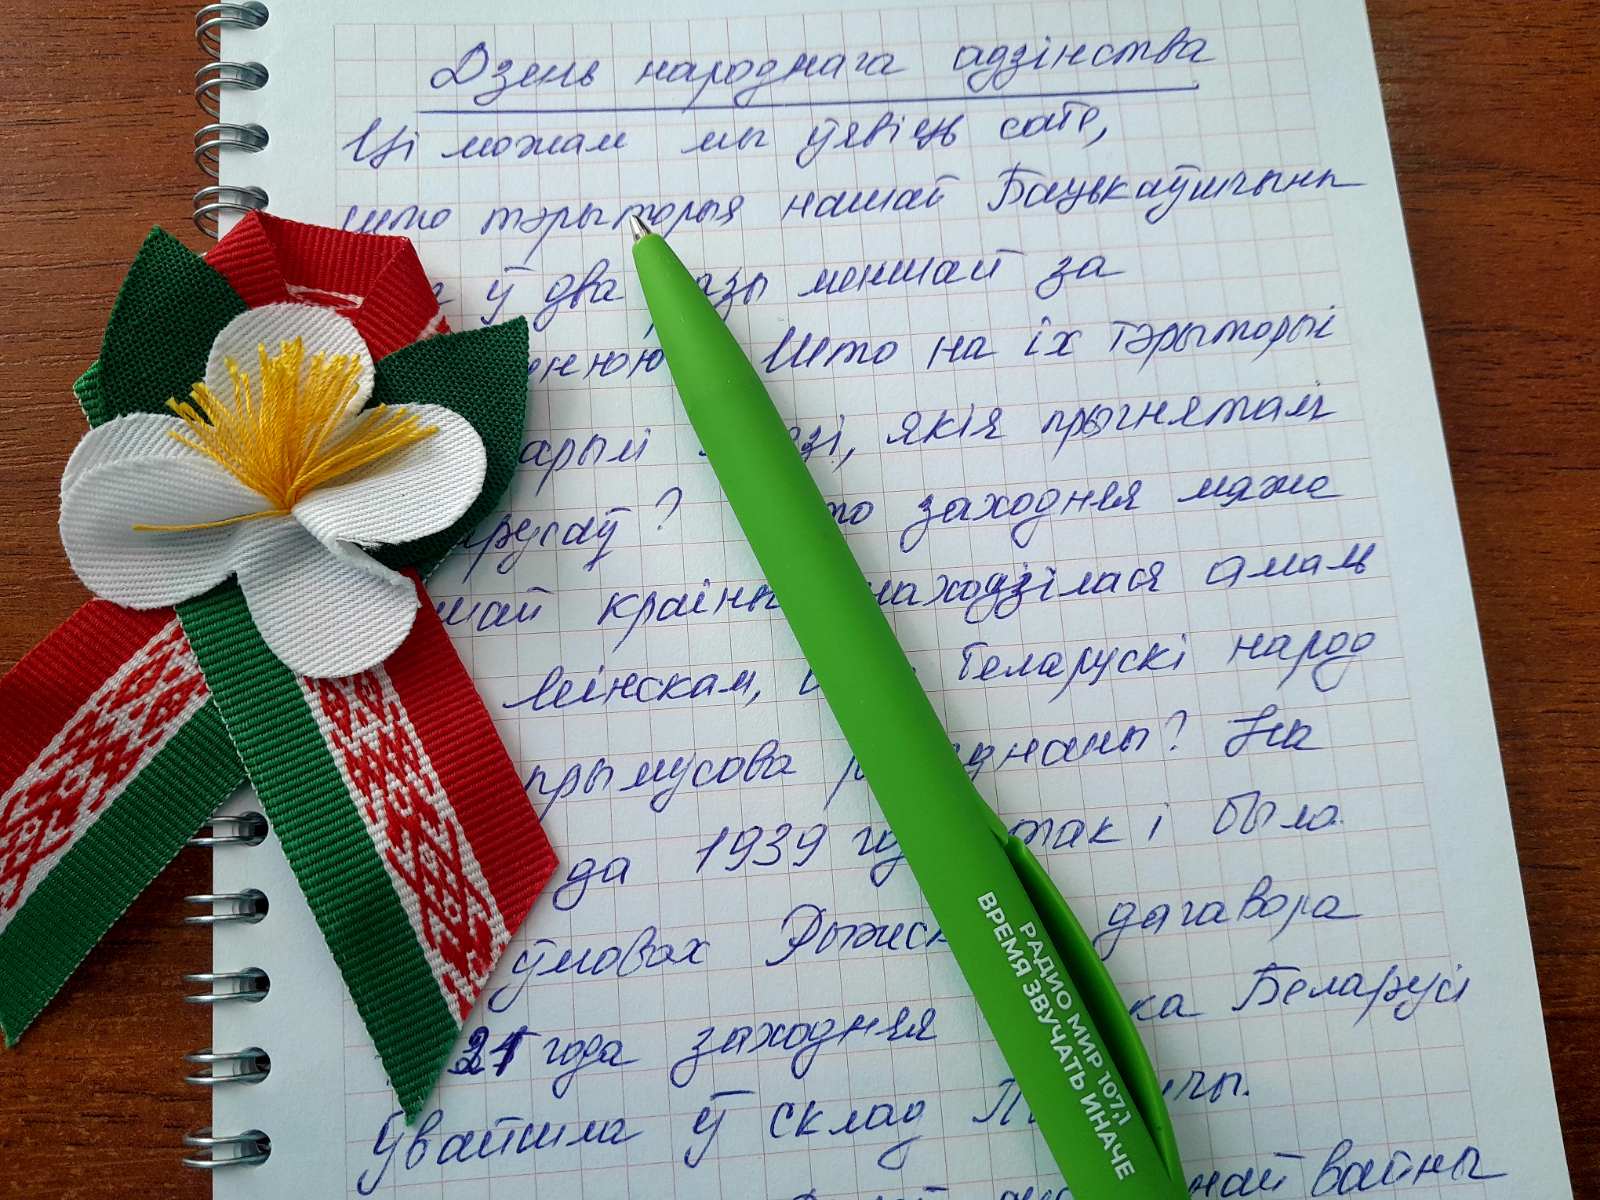 Дзень народнага адзінства
Ці можам мы ўявіць сабе,
што тэрыторыя нашай Бацькаўшчыны
ў два разы меншай за
Што на іх тэрыторыі
якія прыгняталі
заходняя мяжа
краіны знаходзілася амаль
Мінскам, беларускі народ
прымусова раз'яднаны? На
да 1939 года так і было.
ўмовах Рыжскага дагавора
21 года заходняя Беларусі
ўвайшла ў склад Польшчы.
вайны
РАДИО МИР 107,1
ВРЕМЯ ЗВУЧАТЬ ИНАЧЕ